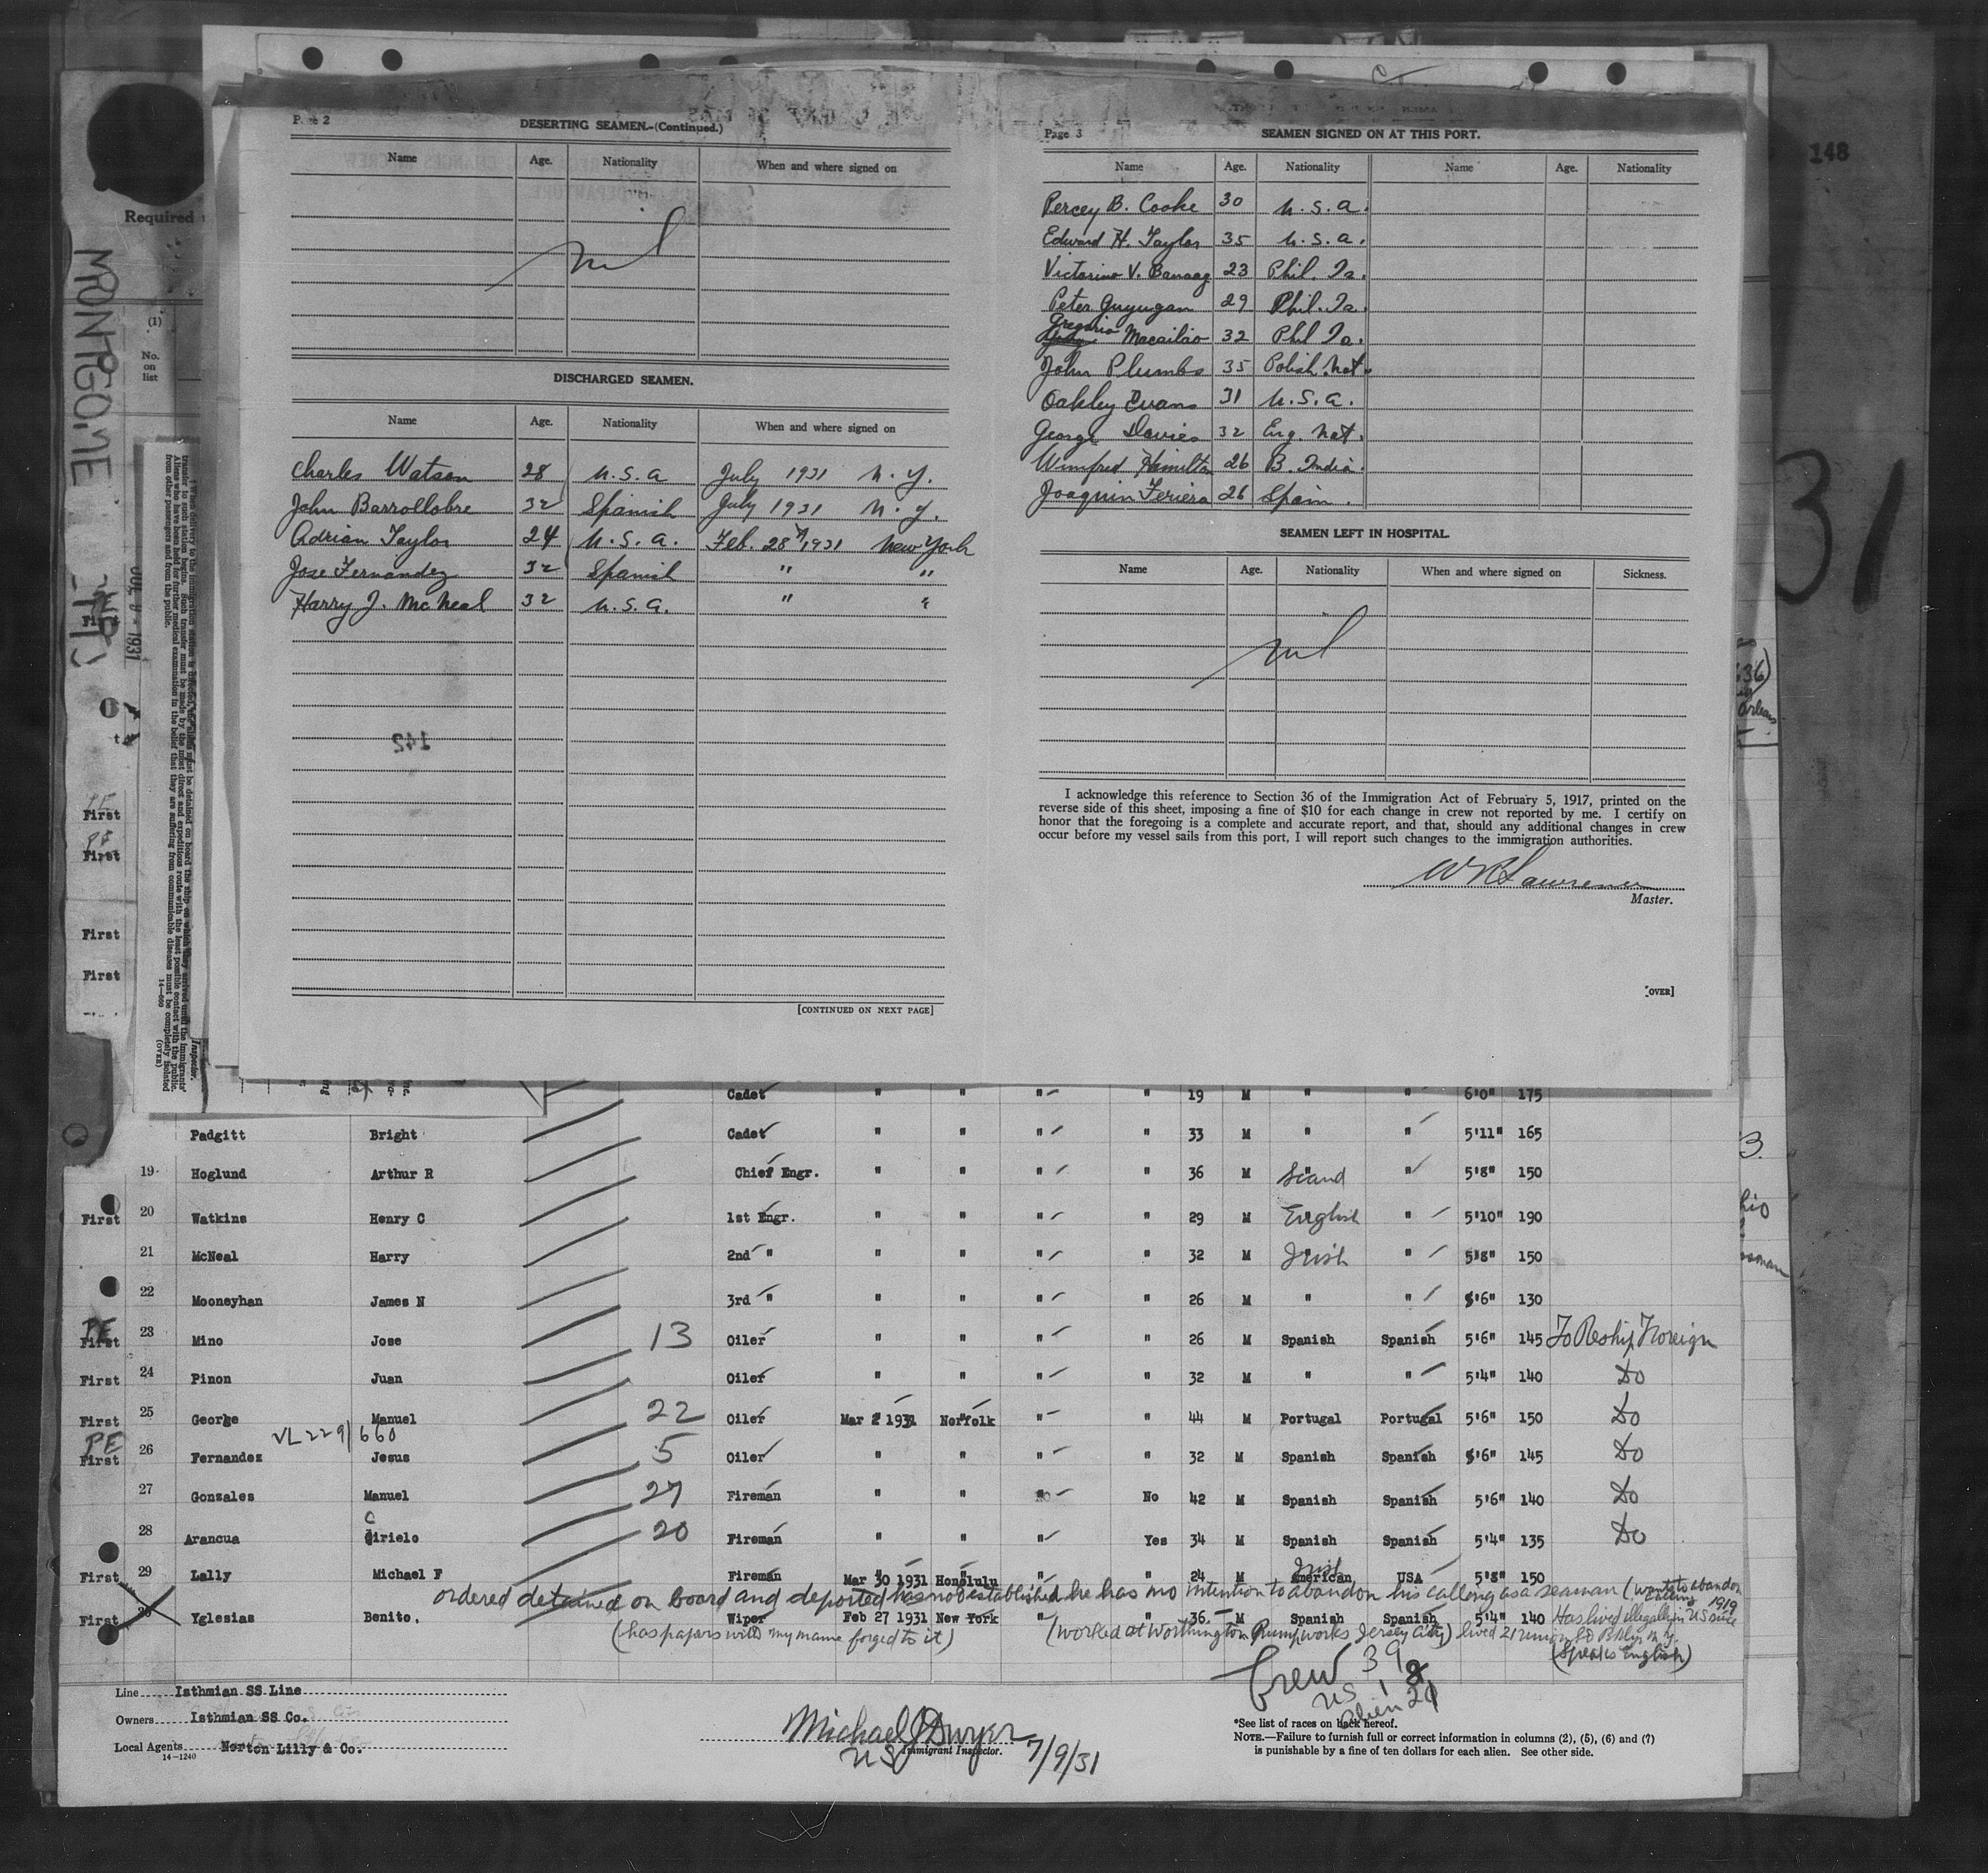 148
31
MONTGO
Required
(1)
No.
on
list
JUL 8 - 1931
Page 2
DESERTING SEAMEN.-(Continued.)
Name Age. Nationality When and where signed on
nil
DISCHARGED SEAMEN.
Name Age. Nationality When and where signed on
Charles Watson 28 U.S.A July 1931 N.Y.
John Barrollobre 32 Spanish July 1931 N.Y.
Adrian Taylor 24 U.S.A. Feb. 28th 1931 New York
Jose Fernandez 32 Spanish " "
Harry J. McNeal 32 U.S.A. " "
142
[CONTINUED ON NEXT PAGE]
Page 3
SEAMEN SIGNED ON AT THIS PORT.
Name Age. Nationality Name Age. Nationality
Percey B. Cooke 30 U.S.A.
Edward H. Taylor 35 U.S.A.
Victorino V. Banaag 23 Phil. Is.
Peter Guyugan 29 Phil. Is.
Gregorio Macailao 32 Phil Is.
John Plumbs 35 Polish Nat.
Oakley Evans 31 U.S.A.
George Davies 32 Eng. Nat.
Winifred Hamilton 26 B. India.
Joaquin Feriera 26 Spain.
SEAMEN LEFT IN HOSPITAL.
Name Age. Nationality When and where signed on Sickness.
nil
I acknowledge this reference to Section 36 of the Immigration Act of February 5, 1917, printed on the
reverse side of this sheet, imposing a fine of $10 for each change in crew not reported by me. I certify on
honor that the foregoing is a complete and accurate report, and that, should any additional changes in crew
occur before my vessel sails from this port, I will report such changes to the immigration authorities.
Lawrence
Master.
[OVER]
Cadet " " " " 19 M " " 6'0" 175
Padgitt Bright Cadet " " " " 33 M " " 5'11" 165
19 Hoglund Arthur R Chief Engr. " " " " 36 M Scand " 5'8" 150
First 20 Watkins Henry C 1st Engr. " " " " 29 M English " 5'10" 190
21 McNeal Harry 2nd " " " " " 32 M Irish " 5'8" 150
22 Mooneyhan James N 3rd " " " " " 26 M " " 5'6" 130
PE
First 23 Mino Jose 13 Oiler " " " " 26 M Spanish Spanish 5'6" 145 To Reship Foreign
First 24 Pinon Juan Oiler " " " " 32 M " " 5'4" 140 Do
First 25 George Manuel 22 Oiler Mar 2 1931 Norfolk " " 44 M Portugal Portugal 5'6" 150 Do
VL 229/660
PE
First 26 Fernandez Jesus 5 Oiler " " " " 32 M Spanish Spanish 5'6" 145 Do
27 Gonzales Manuel 27 Fireman " " No No 42 M Spanish Spanish 5'6" 140 Do
28 Arancua Cirielo 20 Fireman " " " Yes 34 M Spanish Spanish 5'4" 135 Do
First 29 Lally Michael F Fireman Mar 30 1931 Honolulu " " 24 M Irish American USA 5'8" 150
ordered detained on board and deported has not established he has no intention to abandon his calling as a seaman (wants to abandon calling
First 30 Yglesias Benito. Wiper Feb 27 1931 New York " " 36 M Spanish Spanish 5'4" 140 Has lived illegally in US since 1919
(has papers with my name forged to it) (worked at Worthington Pump works Jersey City) lived 21 Union St Bklyn N.Y.
(Speaks English)
Crew 39
US 18
Alien 21
Line Isthmian SS Line
Owners Isthmian SS Co.
Local Agents Norton Lilly & Co.
14-1240
Michael J Dwyer
US Immigrant Inspector. 7/9/31
*See list of races on back hereof.
NOTE.—Failure to furnish full or correct information in columns (2), (5), (6) and (7)
is punishable by a fine of ten dollars for each alien. See other side.